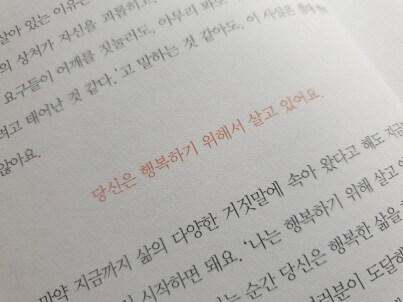 살아 있는 이유는
의 상처가 자신을 괴롭히고, 아무리 봐도
요구들이 어깨를 짓눌러도, 아무리 봐도
려고 태어난 것 같다.' 고 말하는 것 같아도, 이 사실은
않아요.
당신은 행복하기 위해서 살고 있어요.
만약 지금까지 삶의 다양한 거짓말에 속아 왔다고 해도 지금
시작하면 돼요. '나는 행복하기 위해 살고
는 순간 당신은 행복한 삶을
여러분이 도달해